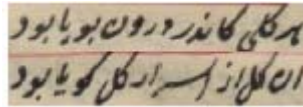 هر کلی کاندر درون بویا بود
ان کل از اسرار کل کویا بود